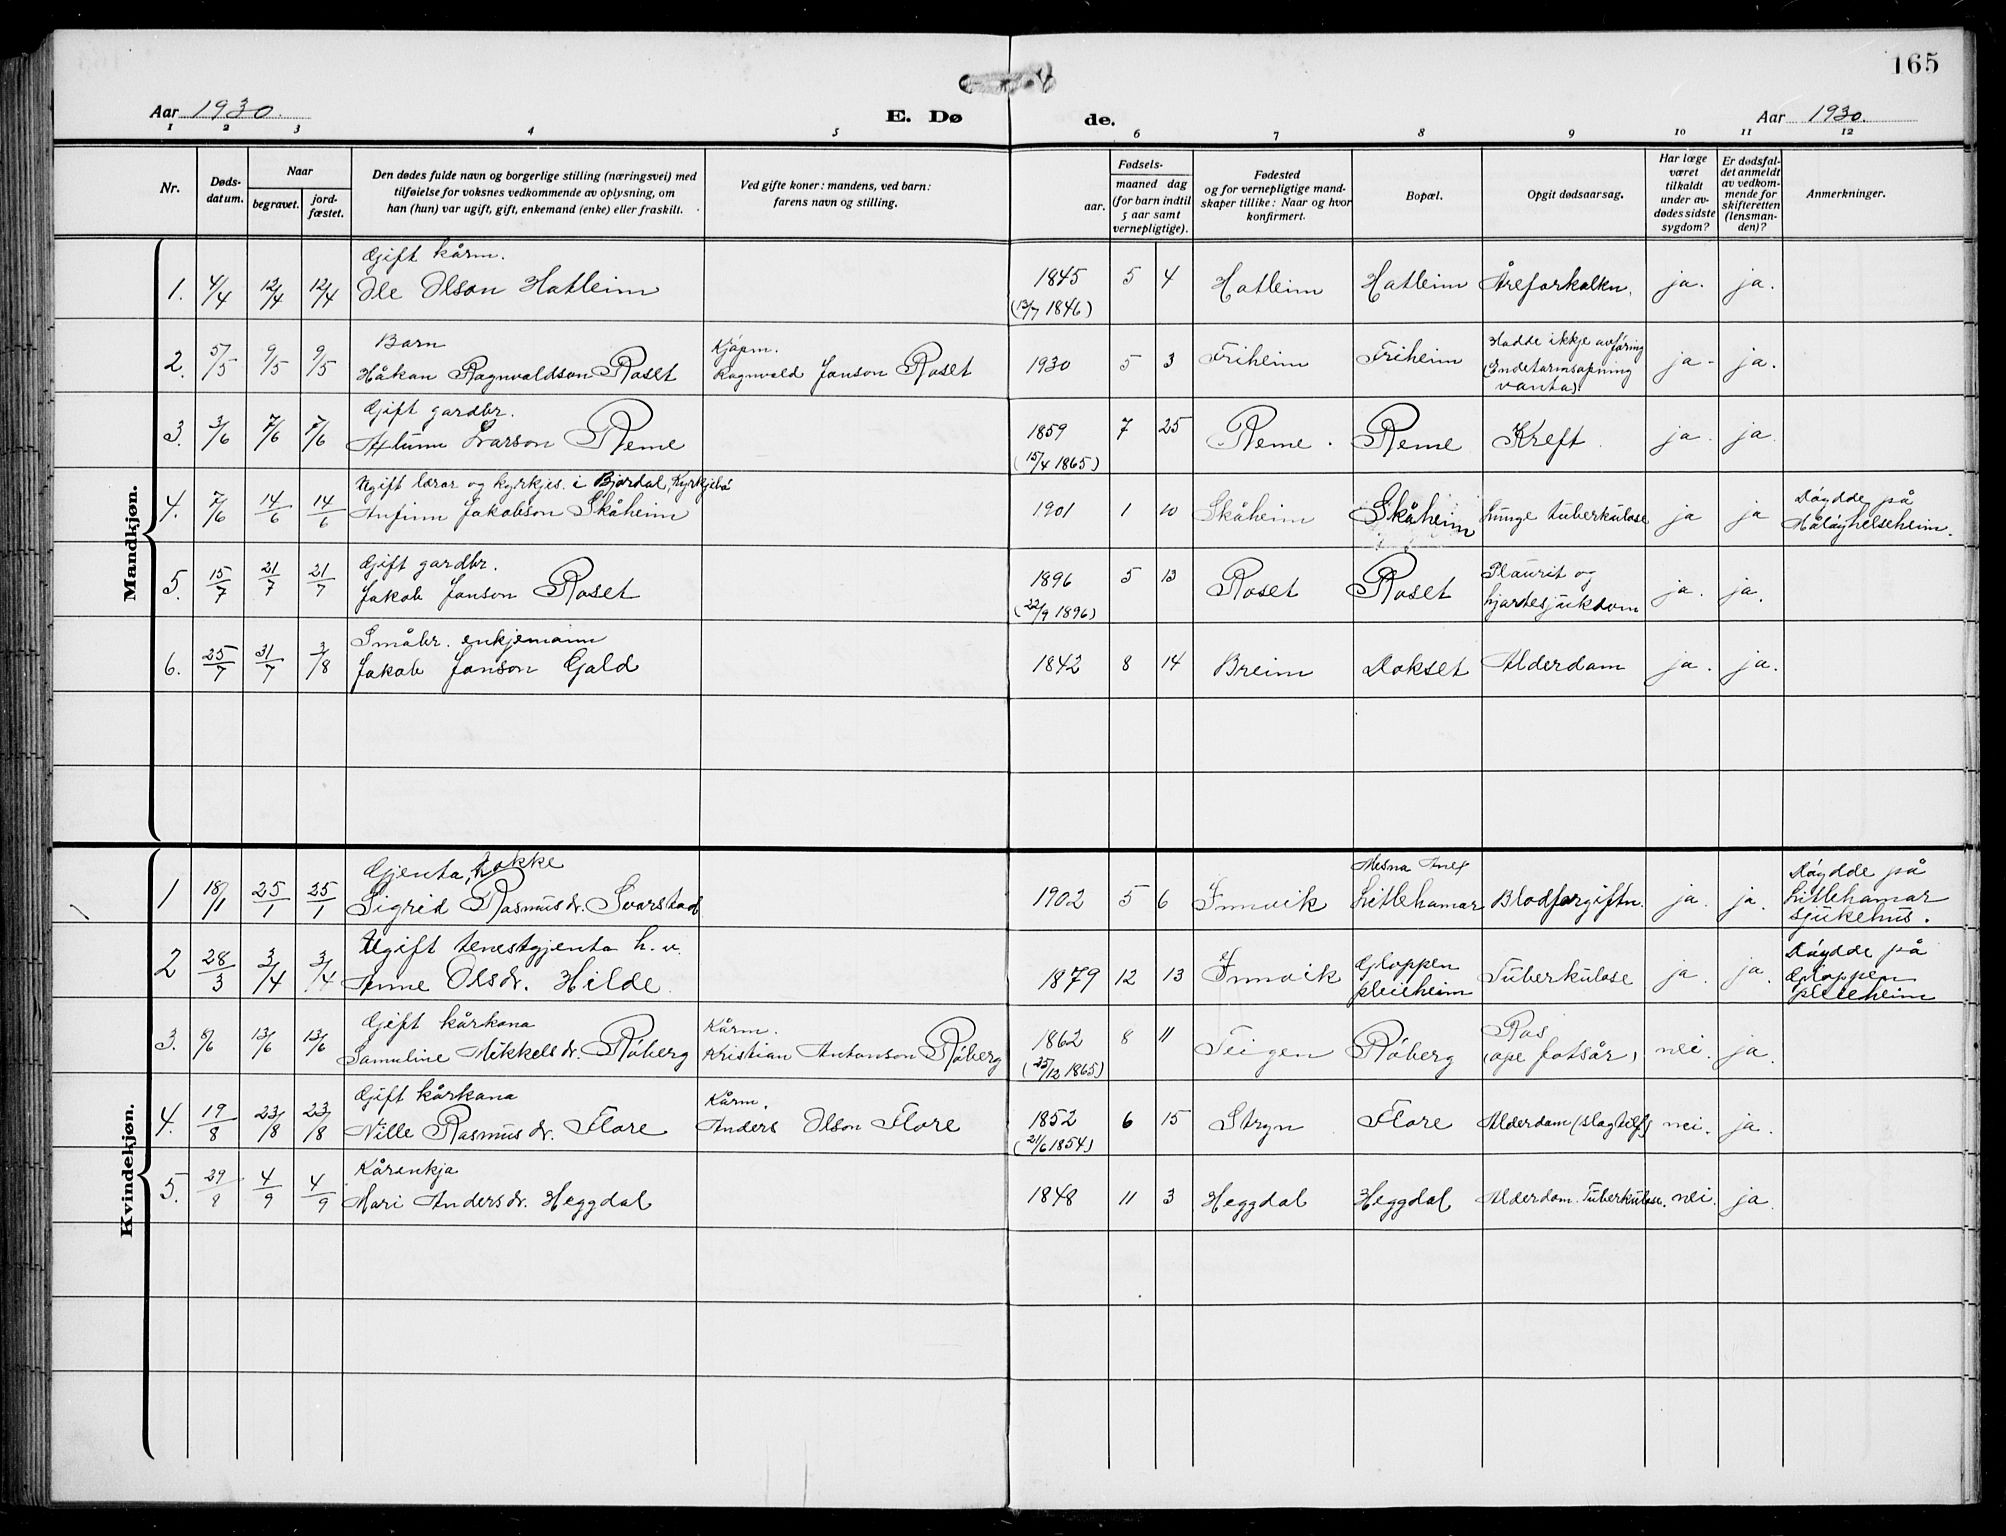 165
Aar 1930.
E. Dø
de.
Aar 1930.
1 2 3 4 5 6 7 8 9 10 11 12
Nr.
Døds-
datum.
Naar
begravet.
jord-
fæstet.
Den dødes fulde navn og borgerlige stilling (næringsvei) med
tilføielse for voksnes vedkommende av oplysning, om
han (hun) var ugift, gift, enkemand (enke) eller fraskilt.
Ved gifte koner: mandens, ved barn:
farens navn og stilling.
Fødsels-
aar.
maaned dag
(for barn indtil
5 aar samt
vernepligtige).
Fødested
og for vernepligtige mand-
skaper tillike: Naar og hvor
konfirmert.
Bopæl.
Opgit dødsaarsag.
Har læge
været
tilkaldt
under av-
dødes sidste
sygdom?
Er dødsfal-
det anmeldt
av vedkom-
mende for
skifteretten
(lensman-
den)?
Anmerkninger.
Mandkjøn.
Gift kårm.
1. 4/4 12/4 12/4 Ole Olson Hatleim 1845 5 4 Hatleim Hatleim Åreforkalkn. ja. ja.
(12/7 1846)
Barn Kjøpm. Hadde ikkje avføring
2. 5/5 9/5 9/5 Håkon Ragnvaldson Roset Ragnvald Janson Roset 1930 5 3 Friheim Friheim (Endetarmsopning ja. ja.
vanta).
Gift gardbr.
3. 3/6 7/6 7/6 Larson Reme 1859 7 25 Reme. Reme Kreft. ja. ja.
(15/4 1865)
Ugift lærar og kyrkjes. i Bjordal, Kyrkjebø Døydde på
4. 7/6 14/6 14/6 Anfinn Jakobson Skåheim 1901 1 10 Skåheim Skåheim Lunge tuberkulose ja ja helseheim.
Gift gardbr. Plaurit og
5. 15/7 21/7 21/7 Jakob Janson Roset 1896 5 13 Roset Roset hjartesjukdom ja. ja.
(22/9 1896)
Småbr. enkjemann
6. 25/7 31/7 3/8 Jakob Janson Gald 1842 8 14 Breim Dokset Alderdom ja. ja.
Kvindekjøn.
Gjenta, kokke Mesna Døydde på
1 18/1 25/1 25/1 Sigrid Rasmusdr. Svarstad 1902 5 6 Innvik Littlehamar Blodforgiftn. ja. ja. Littlehamar
sjukehus.
Ugift tenestgjenta h. v. Gloppen Døydde på
2 28/3 3/4 3/4 Anne Olsdr. Hilde. 1879 12 13 Innvik pleieheim Tuberkulose ja. ja. Gloppen
pleieheim
Gift kårkona Kårm. Ros
3. 8/6 13/6 13/6 Samuline Mikkelsdr. Røberg Kristian Antonson Røberg 1862 8 11 Teigen Røberg (ope fotsår) nei. ja.
(25/12 1865)
Gift kårkona Kårm.
4. 19/8 23/8 23/8 Nille Rasmusdr. Flore Anders Olson Flore 1852 6 15 Stryn Flore Alderdom (slagtilf) nei. ja.
(21/6 1854)
Kårenkja
5. 29/8 4/9 4/9 Mari Andersdr. Heggdal 1848 11 3 Heggdal Heggdal Alderdom. Tuberkulose. nei. ja.